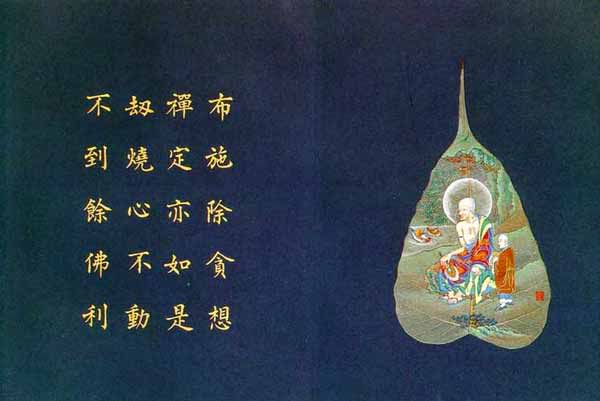 布施除貪想
禪定亦如是
刼燒心不動
不到餘佛利